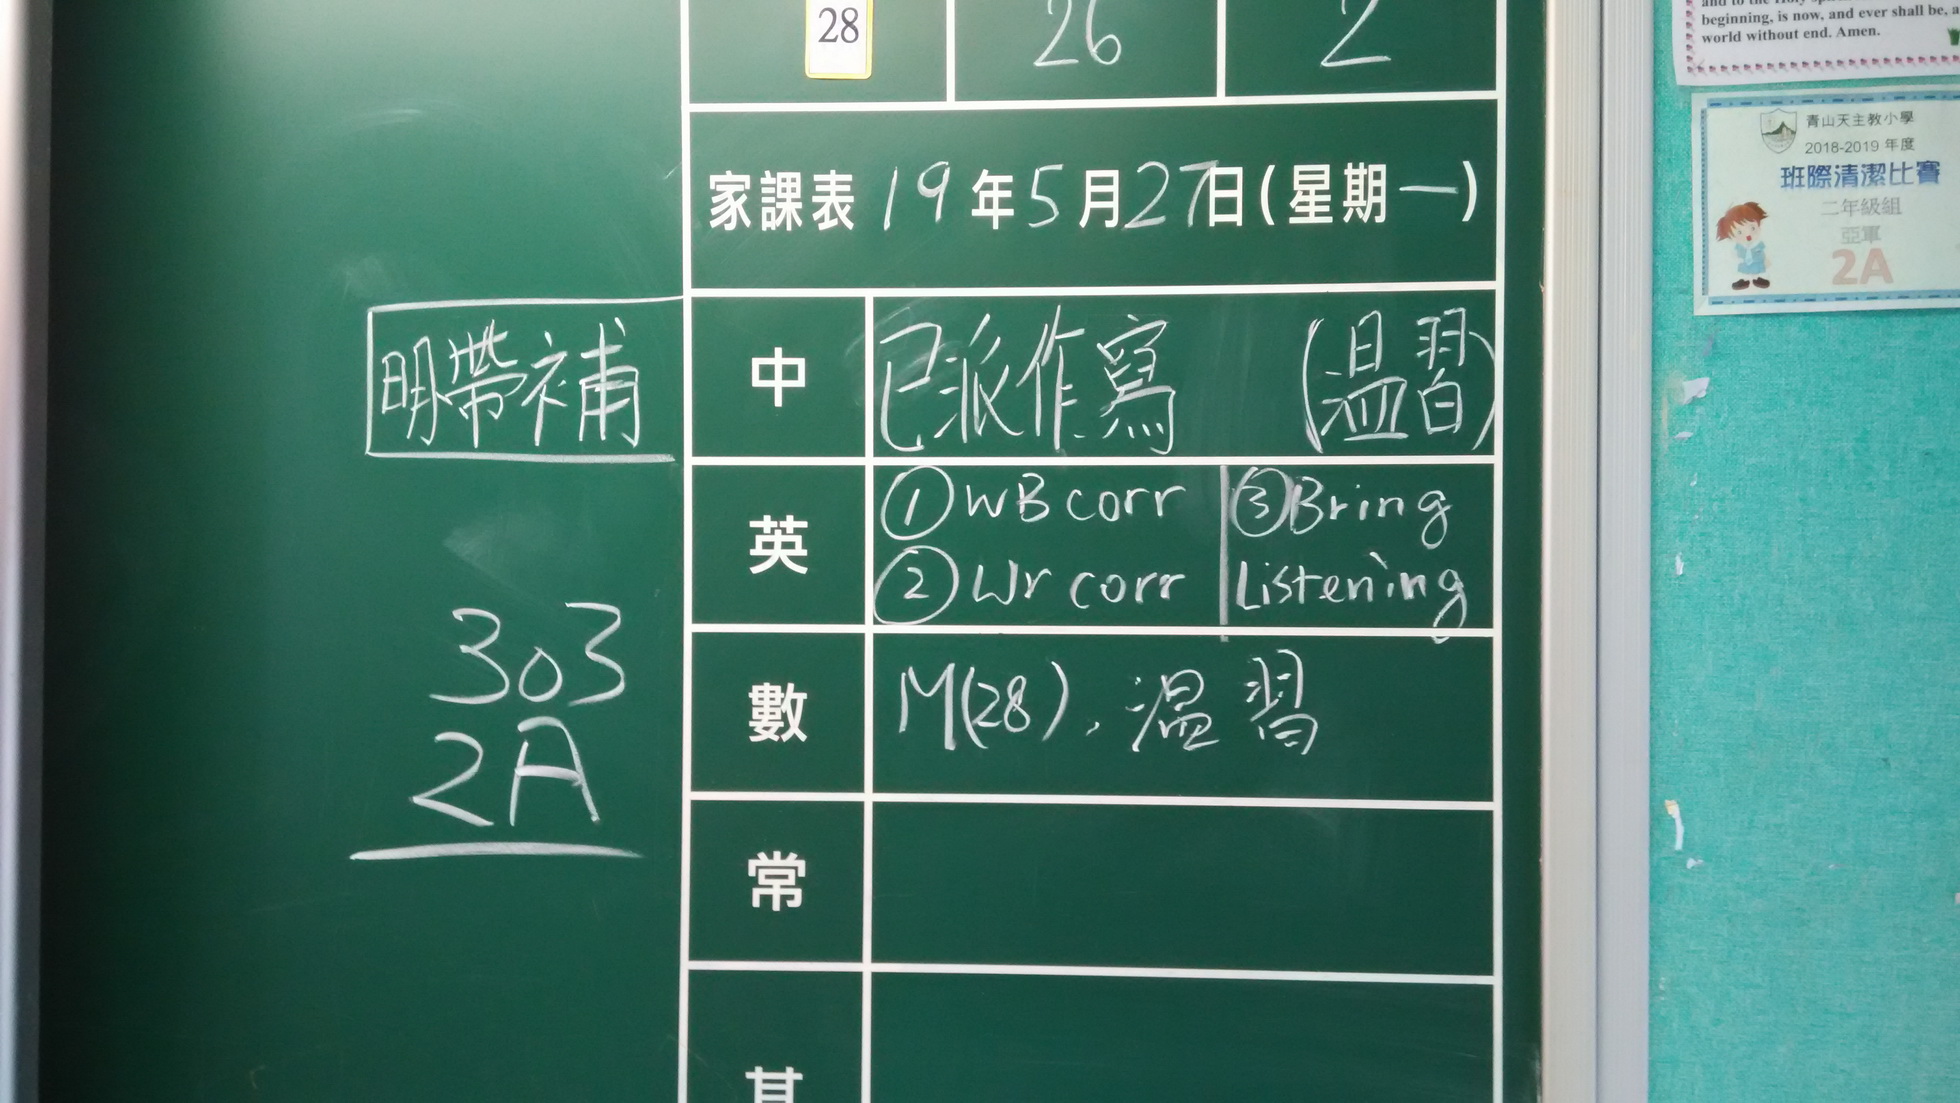 28 26 2
家課表 19年5月27日(星期一)
明帶補
中 已派作寫 (溫習)
英 ①WB corr ③Bring
②Wr corr Listening
數 M(28), 溫習
常
303
2A
beginning, is now, and ever shall be, a
world without end. Amen.
青山天主教小學
2018-2019 年度
班際清潔比賽
二年級組
亞軍
2A